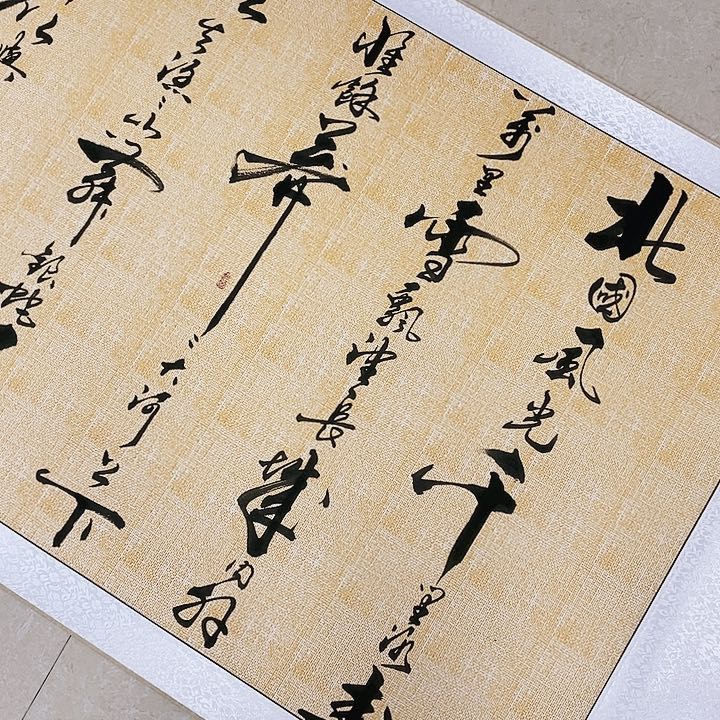 北國風光千里冰封
萬里雪飄望長城內外
惟餘莽〻大河上下
失滔〻山舞銀蛇